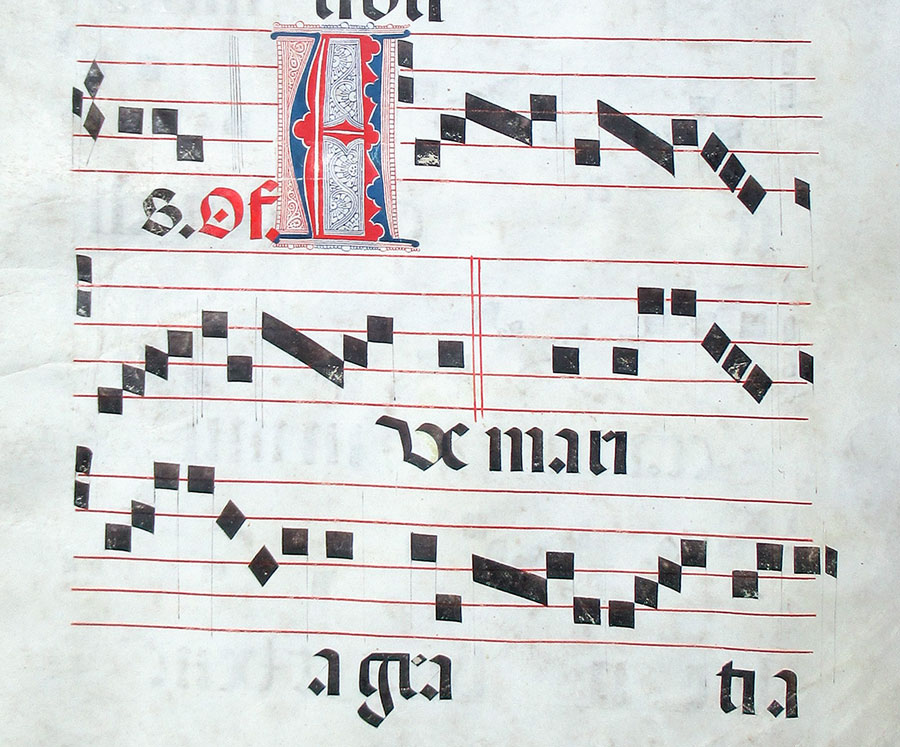 s. Of. A
ve mari
a gra tia